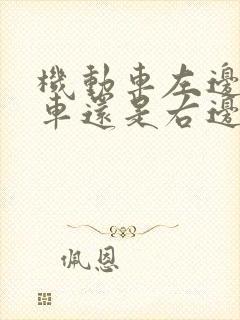 機動車左邊
車還是右邊
佩恩